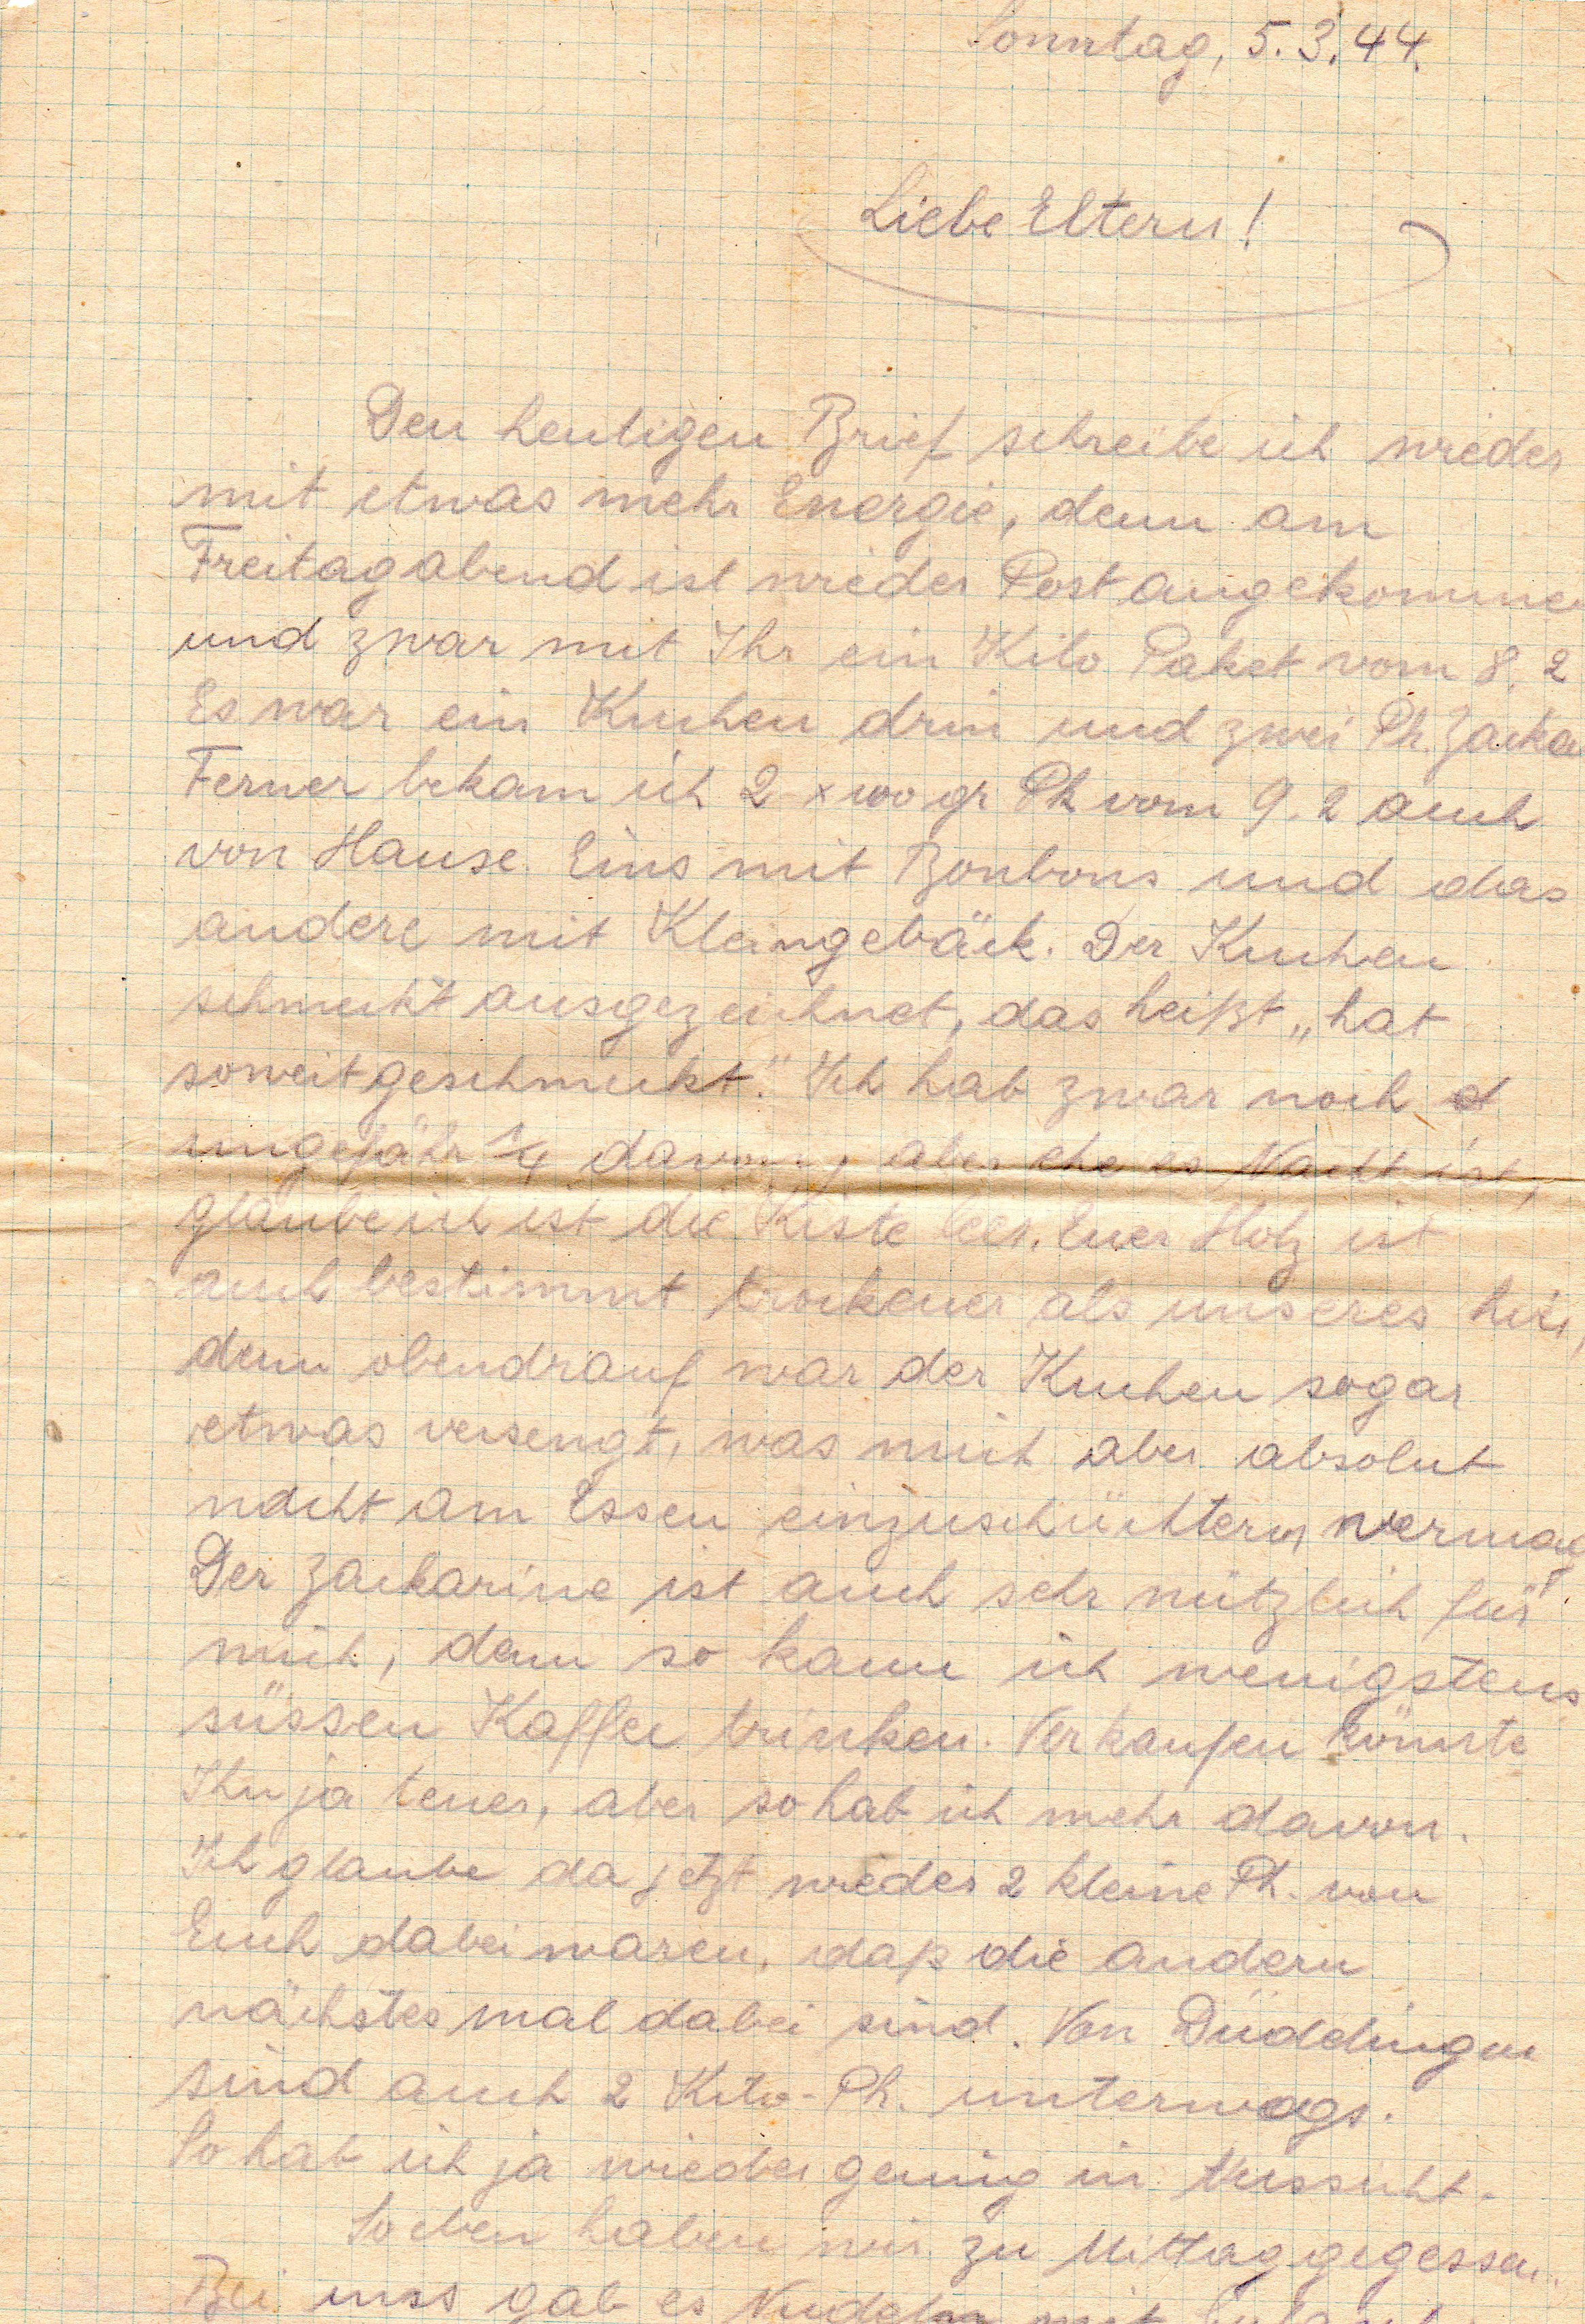 Sonntag, 5.3.44.
Liebe Eltern!
Den heutigen Brief schreibe ich wieder
mit etwas mehr Energie, denn am
Freitagabend ist wieder Post angekommen
und zwar mit Ihr ein Kilo Paket vom 8.2
Es war ein Kuchen drin und zwei Pk. Zacka
Ferner bekam ich 2 x 100 gr Pk vom 9.2 auch
von Hause. Eins mit Bonbons und das
andere mit Kleingebäck. Der Kuchen
schmeckt ausgezeichnet, das heißt „hat
soweit geschmeckt." Ich hab zwar noch
ungefähr 1/4 davon, aber ehe es Nacht ist,
glaube ich ist die Kiste leer. Euer Holz ist
auch bestimmt trockener als unseres hier,
denn obendrauf war der Kuchen sogar
etwas versengt, was mich aber absolut
nicht am Essen einzuschüchtern vermag
Der Zackarine ist auch sehr nützlich für
mich, denn so kann ich wenigstens
süssen Kaffee trinken. Verkaufen könnte
Ihn ja teuer, aber so hab ich mehr davon.
Ich glaube da jetzt wieder 2 kleine Pk. von
Euch dabei waren, daß die andern
nächstes mal dabei sind. Von Düddlingen
sind auch 2 Kilo-Pk. unterwegs.
So hab ich ja wieder genug in Aussicht.
Soeben haben wir zu Mittag gegessen.
Bei uns gab es Nudeln mit